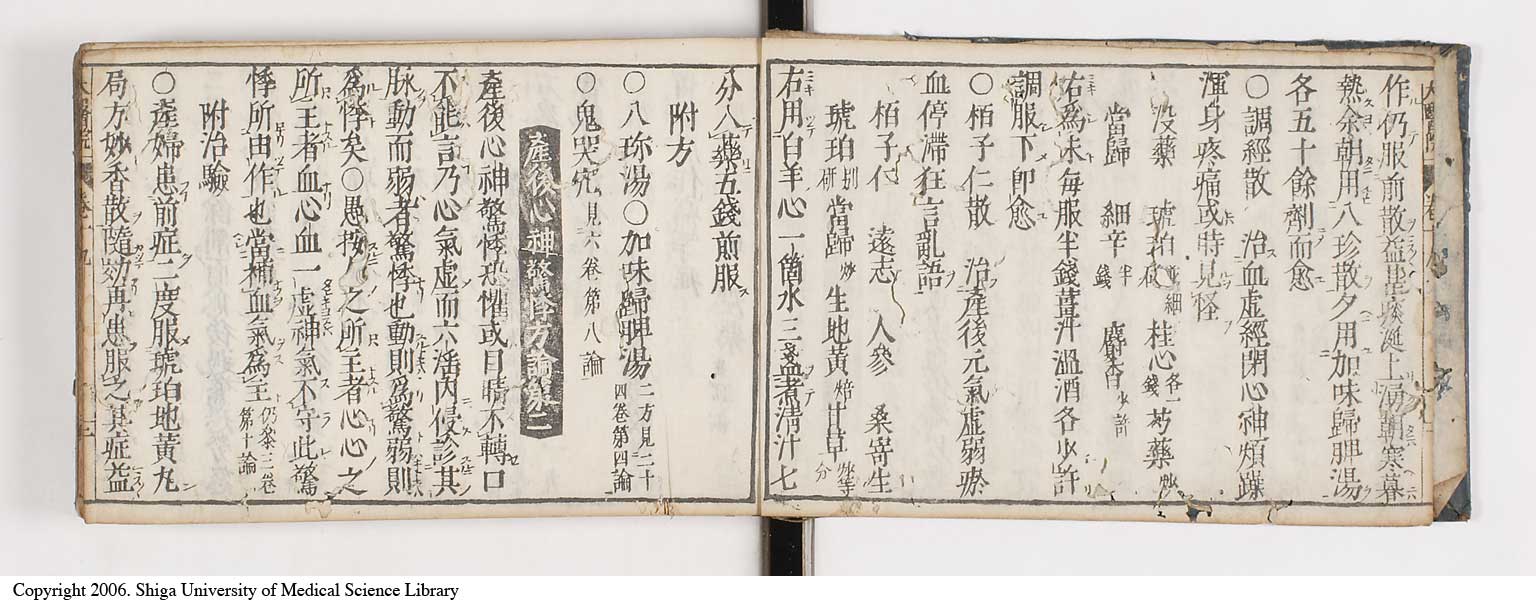 作仍服前散益甚痰涎上涌朝寒暮
熱余朝用八珍散夕用加味歸脾湯
各五十餘劑而愈
○調經散　治血虛經閉心神煩躁
渾身疼痛或時見怪
没藥　琥珀並細研　桂心各一錢　芍藥炒
當歸　細辛半錢　麝香少許
右爲末每服半錢薑汁溫酒各少許
調服下即愈
○栢子仁散　治產後元氣虛弱瘀
血停滯狂言亂語
栢子仁　遠志　人參　桑寄生
琥珀別研　當歸炒　生地黃焙　甘草炒等分
右用白羊心一箇水三盞煮淸汁七
分入藥五錢煎服
附方
○八珎湯○加味歸脾湯二方見二十四卷第四論
○鬼哭咒見六卷第八論
產後心神驚悸方論第二
產後心神驚悸恐懼或目睛不轉口
不能言乃心氣虛而六淫內侵診其
脉動而弱者驚悸也動則爲驚弱則
爲悸矣○愚按人之所主者心心之
所主者血心血一虛神氣不守此驚
悸所由作也當補血氣爲主仍參三卷第十論
附治驗
○產婦患前症二度服琥珀地黃丸
局方妙香散隨効再患服之其症益
Copyright 2006. Shiga University of Medical Science Library